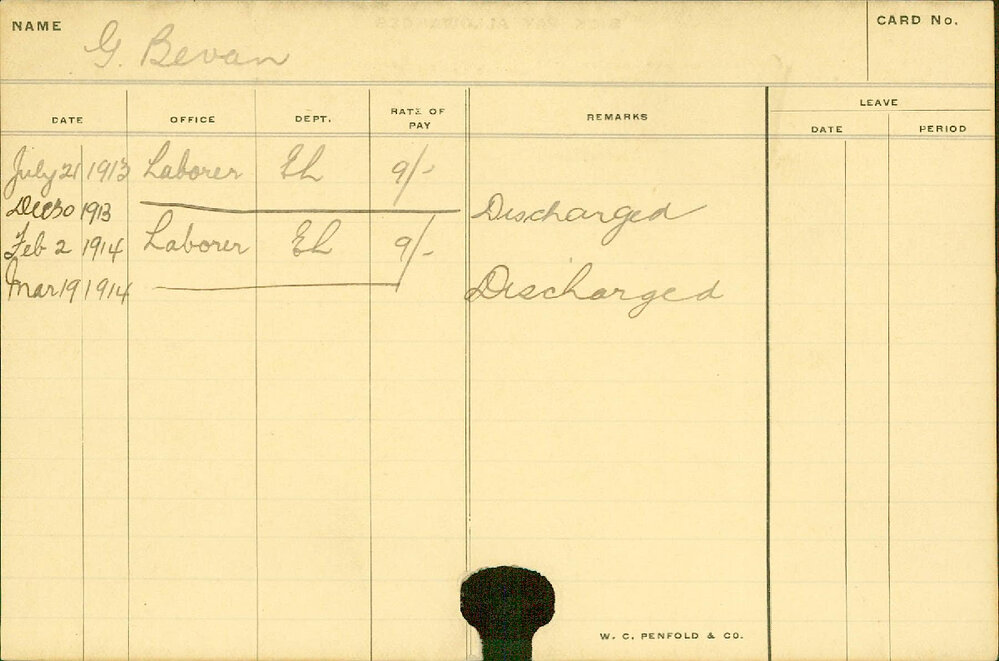 NAME G. Bevan CARD No.
LEAVE
DATE OFFICE DEPT. RATE OF PAY REMARKS DATE PERIOD
July 21 1913 Laborer EL 9/-
Dec 30 1913 Discharged
Feb 2 1914 Laborer EL 9/-
Mar 19 1914 Discharged
W. C. PENFOLD & CO.